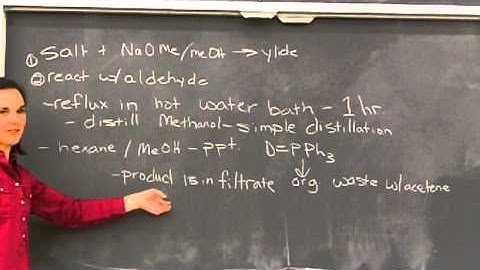 ① Salt + NaOMe/MeOH → ylide
② react w/aldehyde
-reflux in hot water bath - 1 hr
- distill Methanol - simple distillation
- hexane / MeOH - ppt. O=PPh₃
-product is in filtrate org waste w/acetene